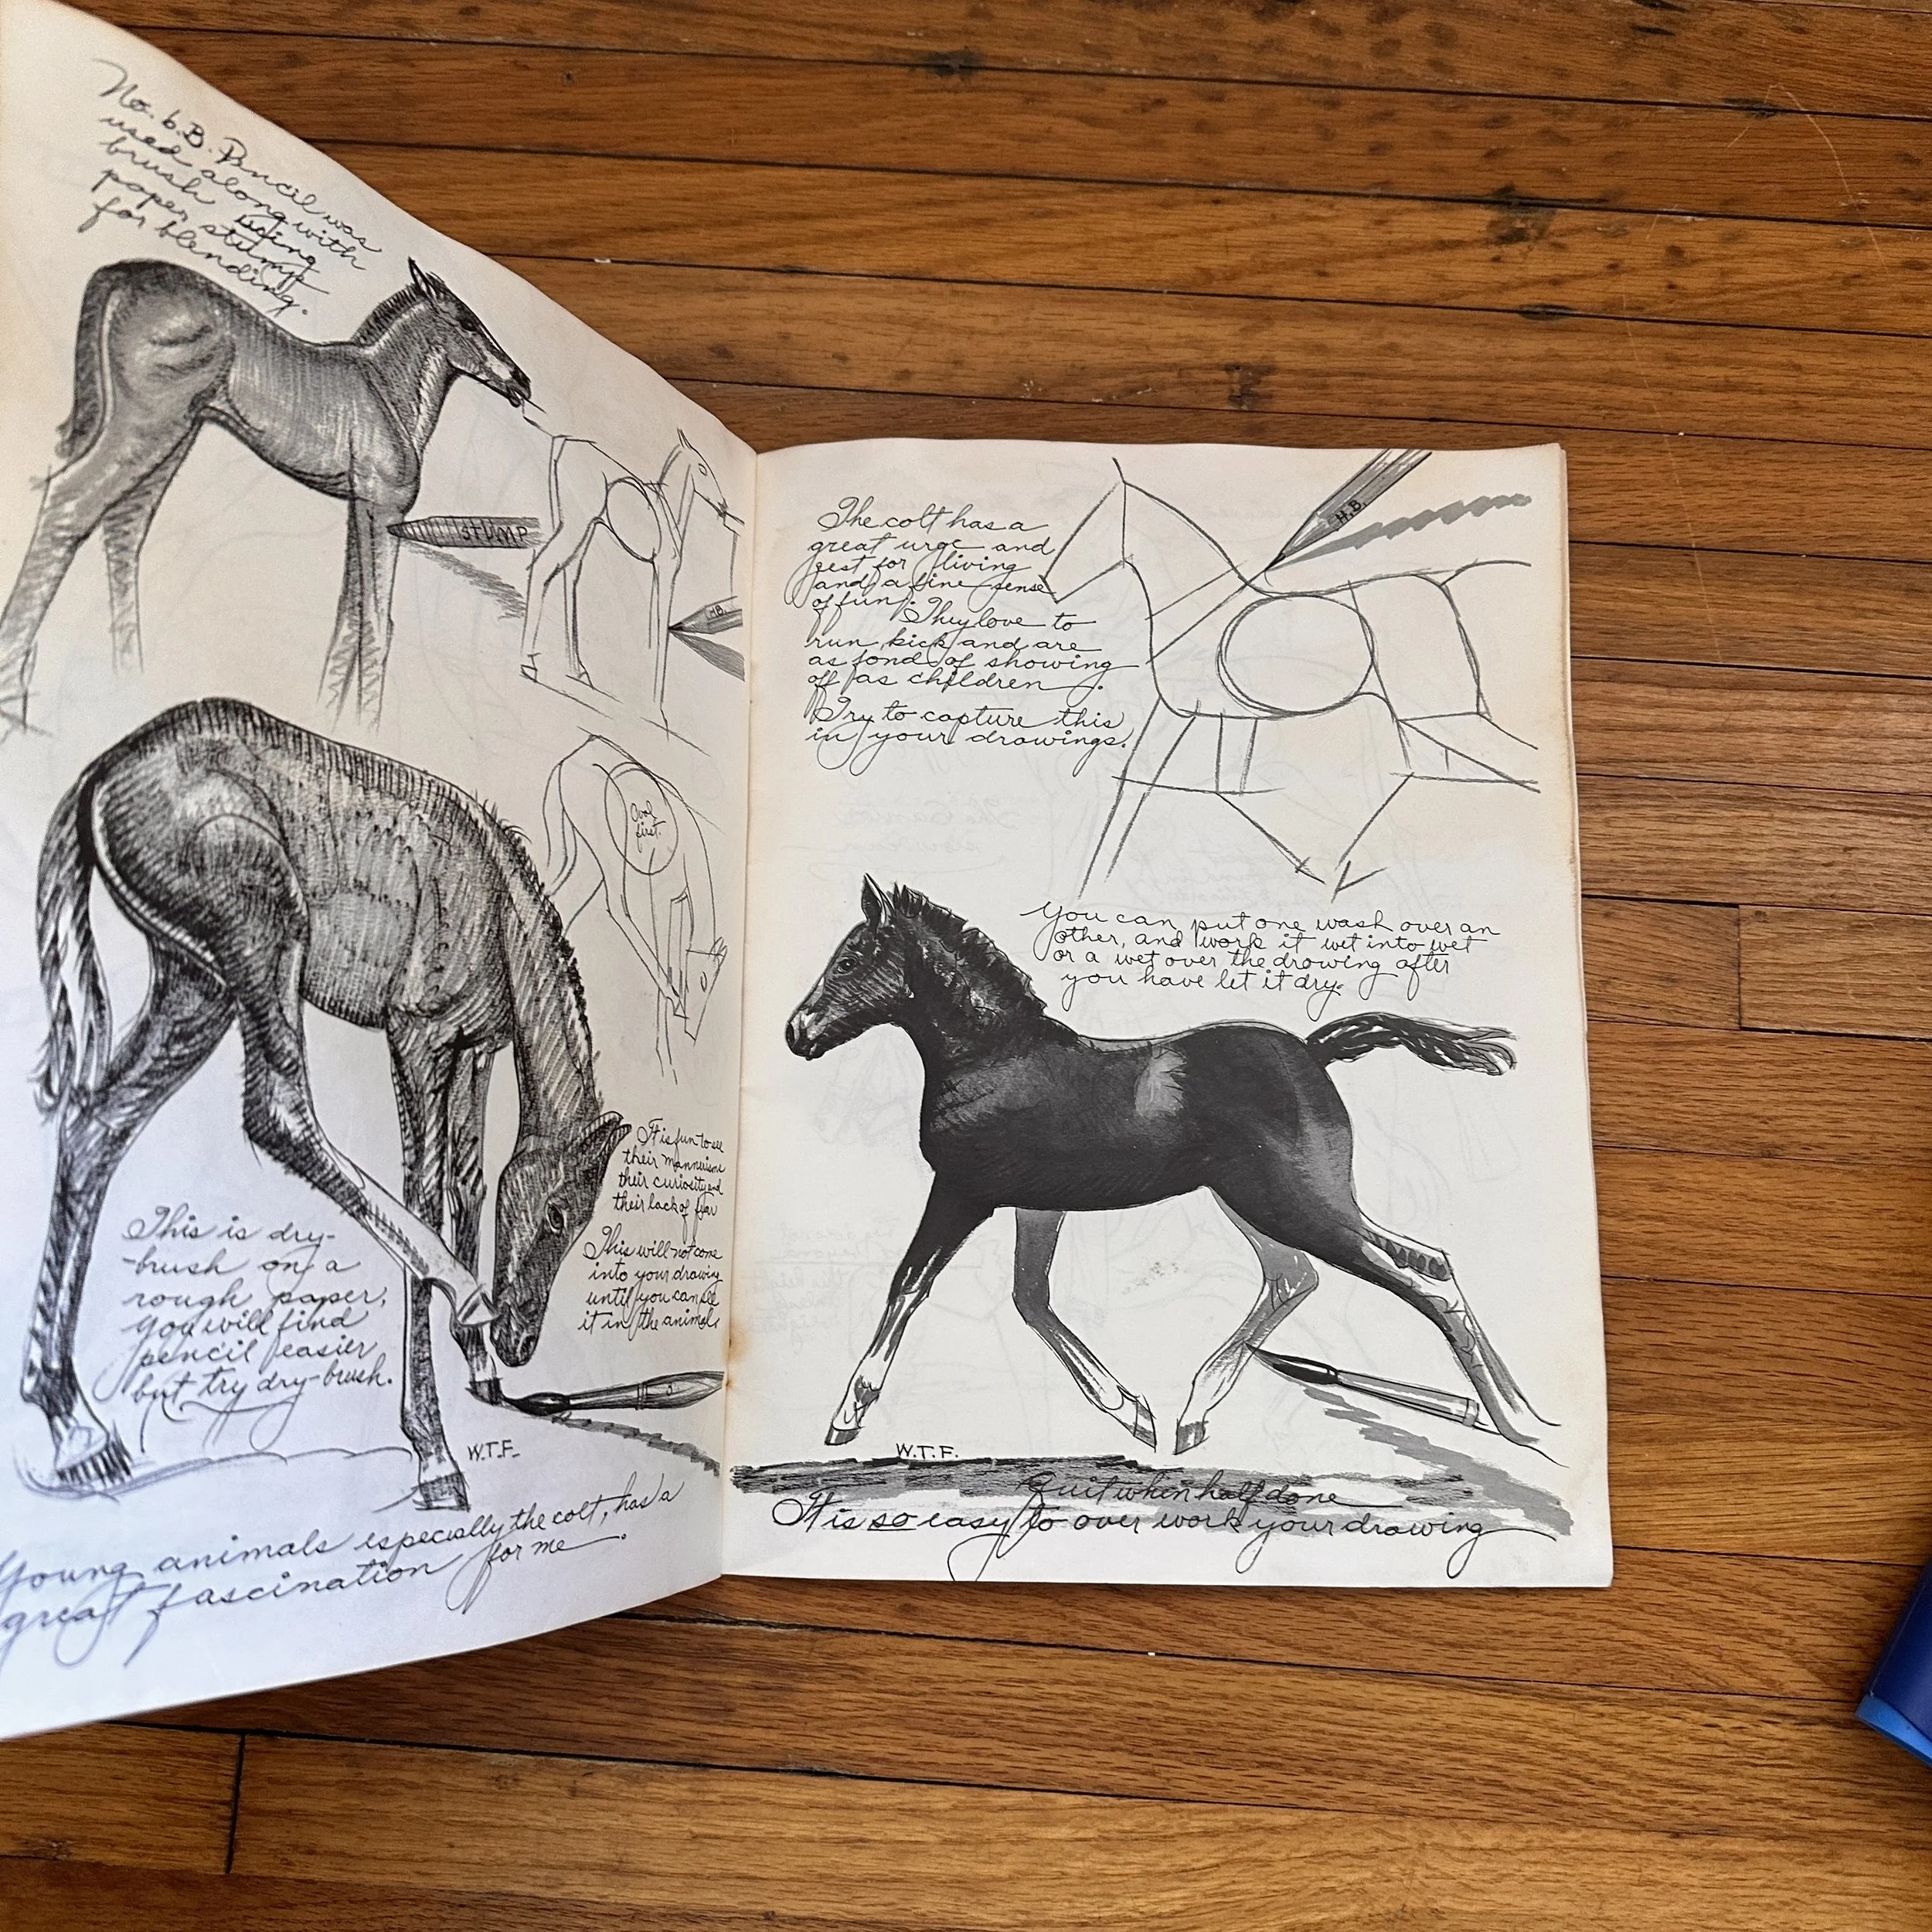 No. 6.B. Pencil was
used along with
brush using
paper stump
for blending.
STUMP
HB.
Oval
first.
It is fun to see
their mannerisms
their curiosity and
their lack of fear
This will not come
into your drawing
until you can see
it in the animal.
This is dry-
-brush on a
rough paper,
you will find
pencil easier
but try dry-brush.
W.T.F.
Young animals especially the colt, has a
great fascination for me.
H.B.
The colt has a
great urge and
zest for living
and a fine sense
of fun. They love to
run, kick and are
as fond of showing
off as children.
Try to capture this
in your drawings.
You can put one wash over an
other, and work it wet into wet
or a wet over the drawing after
you have let it dry.
W.T.F.
Quit when half done
It is so easy to over work your drawing